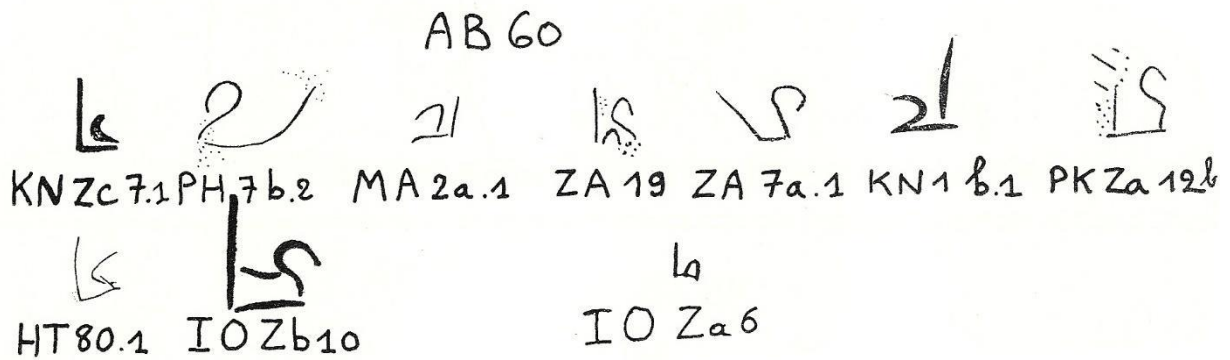 AB 60
KN Zc 7.1 PH 7b.2 MA 2a.1 ZA 19 ZA 7a.1 KN 1 b.1 PK Za 12b
HT 80.1 IO Zb 10 IO Za 6